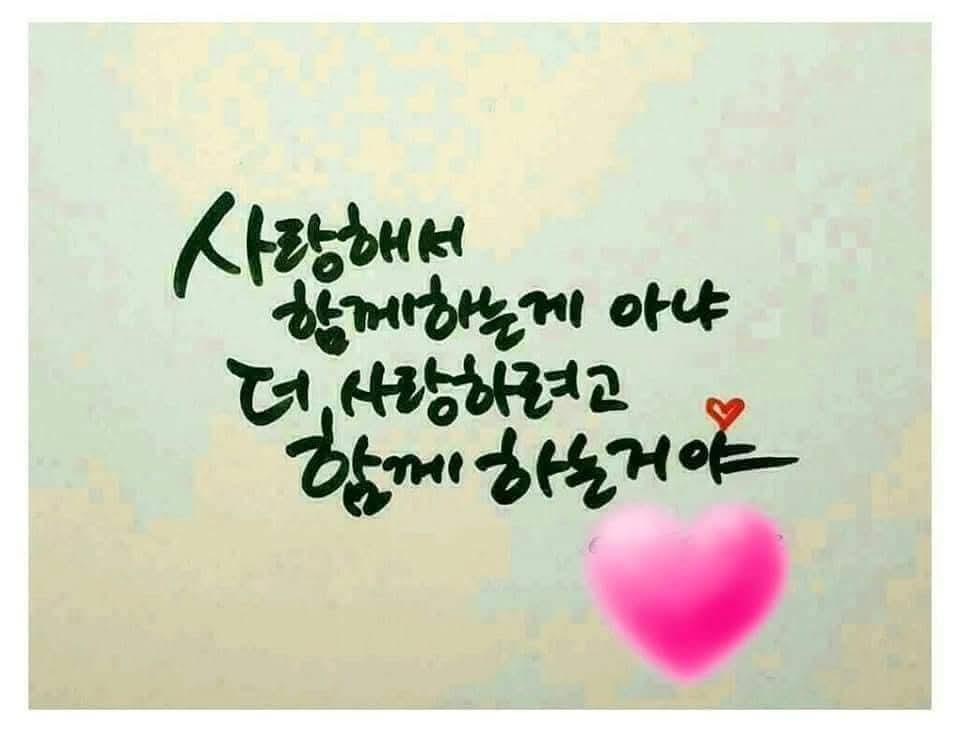 사랑해서
함께하는게 아냐
더 사랑하려고
함께 하는거야